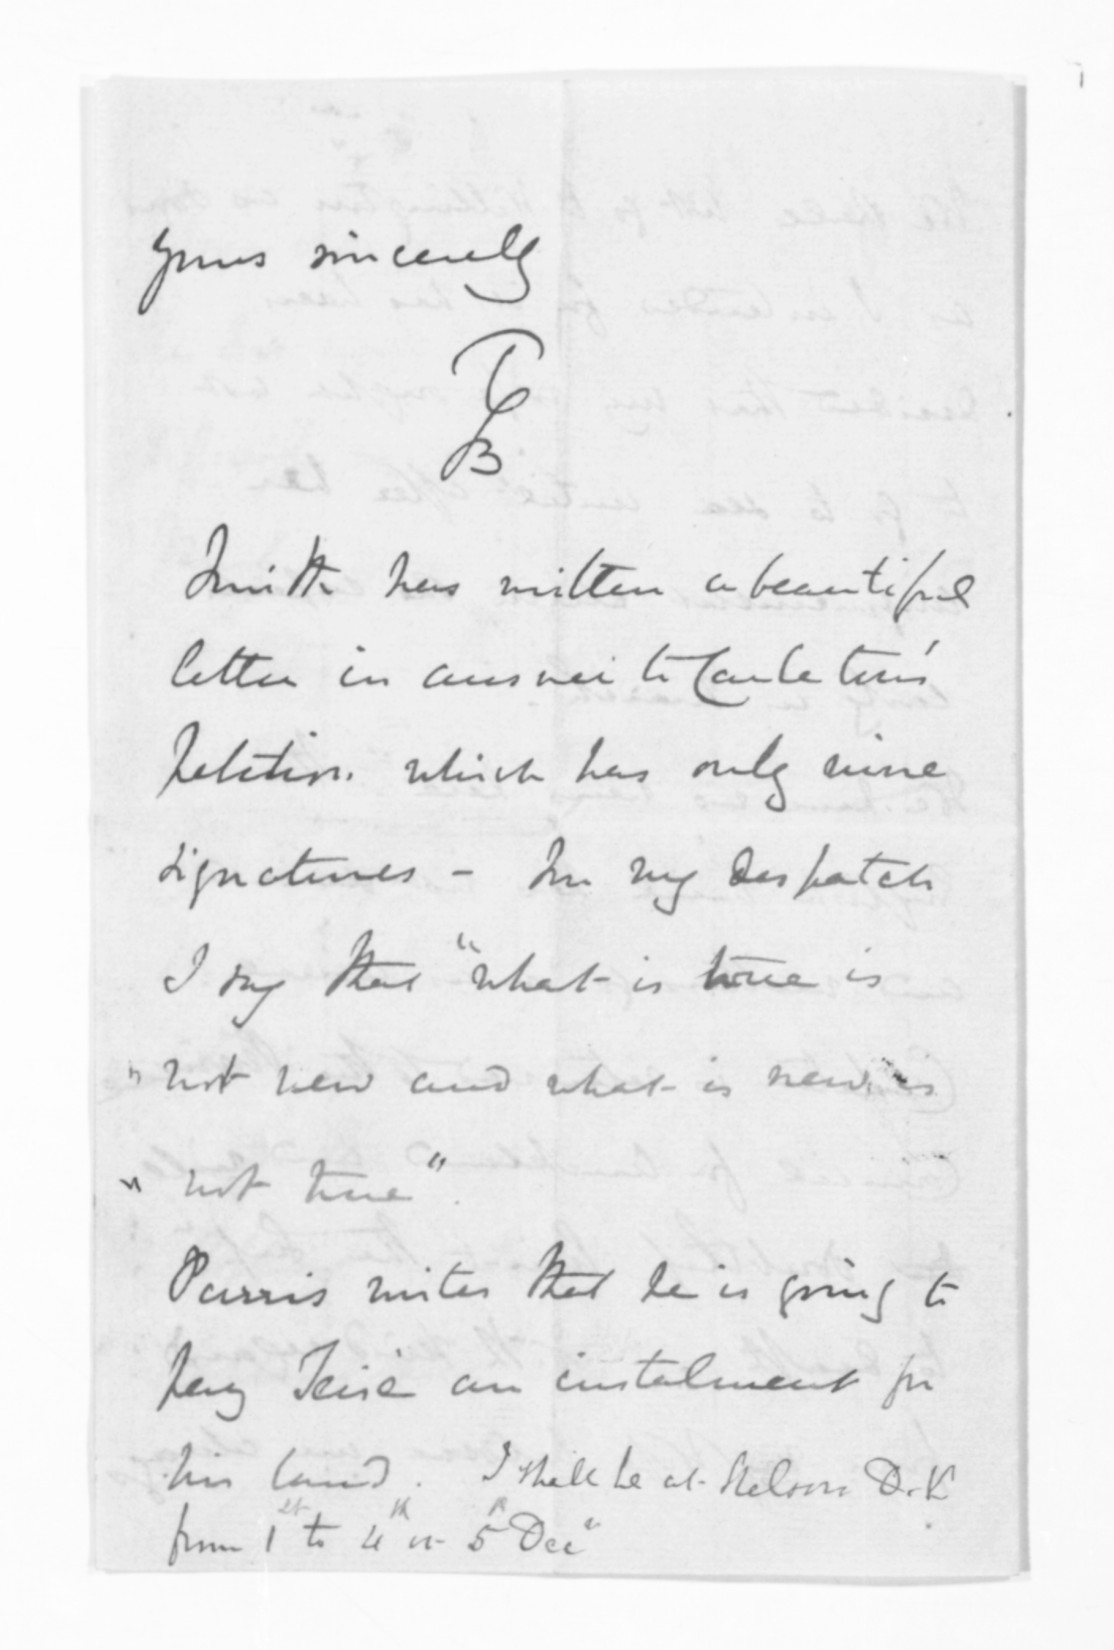 yours sincerely
TGB
Smith has written a beautiful
letter in answer to Carleton's
petition which has only nine
signatures - In my Despatch
I say that "what is true is
" not new and what is new is
" not true".
Parris writes that he is going to
pay Teira an instalment for
his land. I shall be at Nelson D.V
from 1st to 4th or 5th Decr